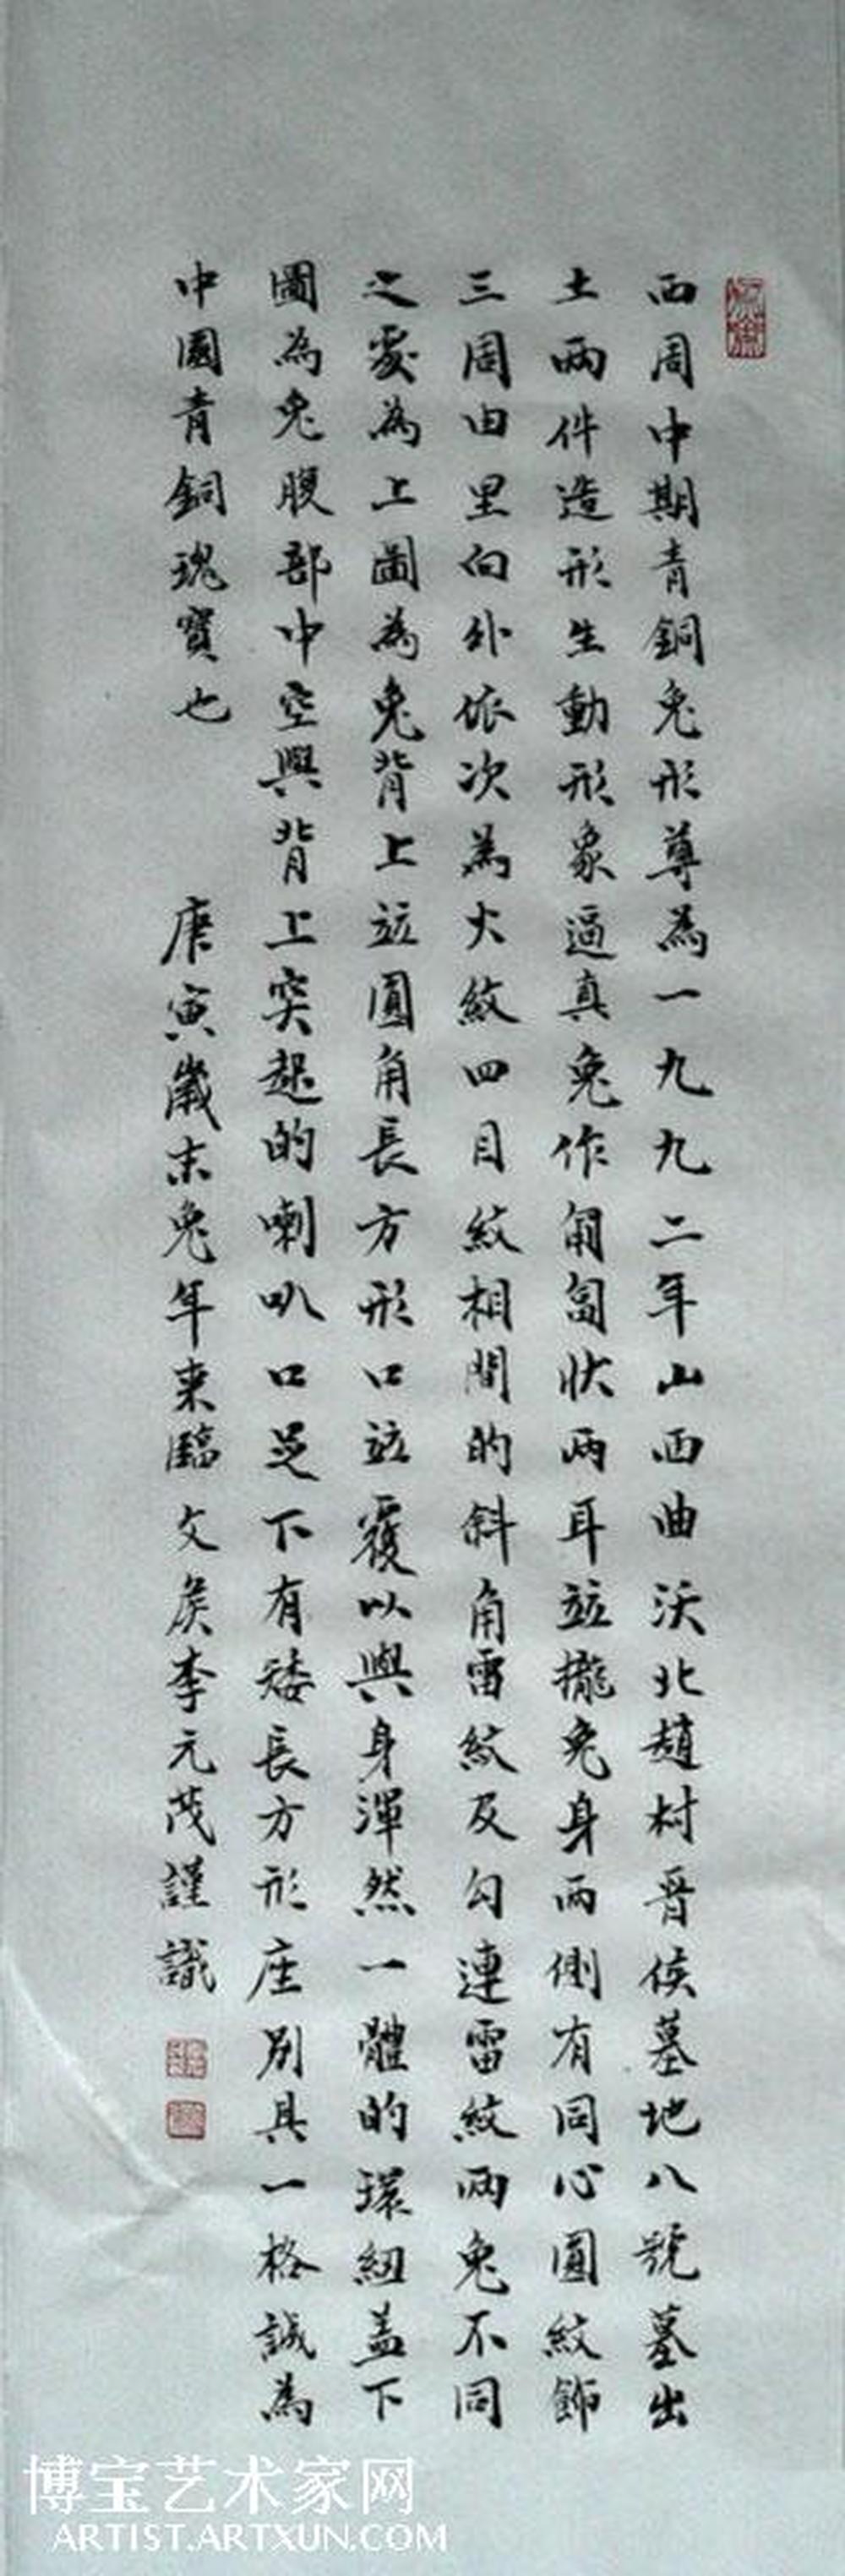 西周中期青銅兔形尊為一九九二年山西曲沃北趙村晉侯墓地八號墓出
土兩件造形生動形象逼真兔作匍匐狀兩耳並攏兔身兩側有同心圓紋飾
三周由里向外依次為火紋四目紋相間的斜角雷紋及勾連雷紋兩兔不同
之處為上圖為兔背上竝圓角長方形口竝覆以與身渾然一體的環紐蓋下
圖為兔腹部中空與背上突起的喇叭口足下有矮長方形座別具一格誠為
中國青銅瑰寶也 庚寅歲末兔年來臨文侯李元茂謹識
博宝艺术家网
ARTIST.ARTXUN.COM